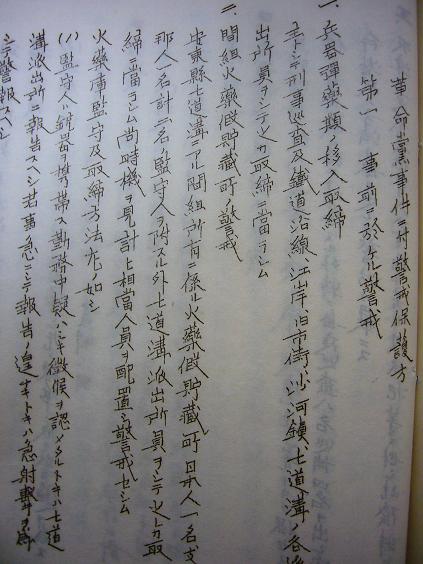 革命黨事件ニ付警戒保護方
第一 事前ニ於ケル警戒
一、兵器彈藥類ノ移入取締
主トシテ刑事巡査及鐵道沿線、江岸、旧市街、沙河鎮、七道溝ノ各派
出所員ヲシテ之カ取締ニ當ラシム
二、間組火藥假貯藏所ノ警戒
安東縣七道溝ニアル間組所有ニ係ル火藥假貯藏所ハ日本人一名支
那人名計二名ノ監守人ヲ附スル外七道溝派出所員ヲシテ之レカ取
締ニ當ラシム尚時機ヲ見計ヒ相當人員ヲ配置シ警戒セシム
火藥庫監守及取締方法左ノ如シ
(1) 監守人ハ銃器ヲ携帶ス勤務中疑ハシキ徴候ヲ認メタルトキハ七道
溝派出所ニ報告スヘシ若事急ニシテ報告ノ遑ナキトキハ急射撃ヲ爲
シテ警報スヘシ